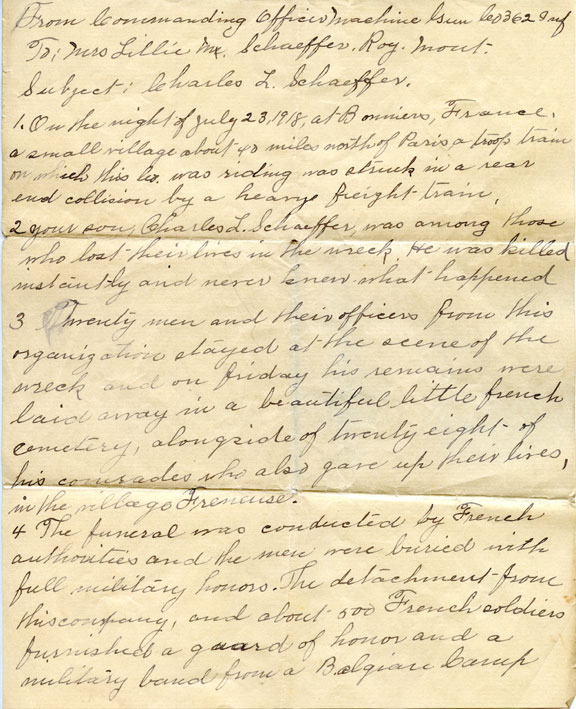 From Commanding Officer Machine Gun Co 362 Inf
To; Mrs Lillie M. Schaeffer, Roy. Mont.
Subject; Charles L. Schaeffer.
1. On the night of July 23, 1918, at Bonniers, France,
a small village about 40 miles north of Paris a troop train
on which this Co. was riding was struck in a rear
end collision by a heavy freight train,
2 your son, Charles L. Schaeffer, was among those
who lost their lives in the wreck. He was killed
instantly and never knew what happened
3 Twenty men and their officers from this
organization stayed at the scene of the
wreck and on friday his remains were
laid away in a beautiful little french
cemetery, alongside of twenty eight of
his comrades who also gave up their lives,
in the village Freneuse.
4 The funeral was conducted by French
authorities and the men were buried with
full military honors. The detachment from
this company, and about 500 French soldiers
furnished a guard of honor and a
military band from a Belgian Camp